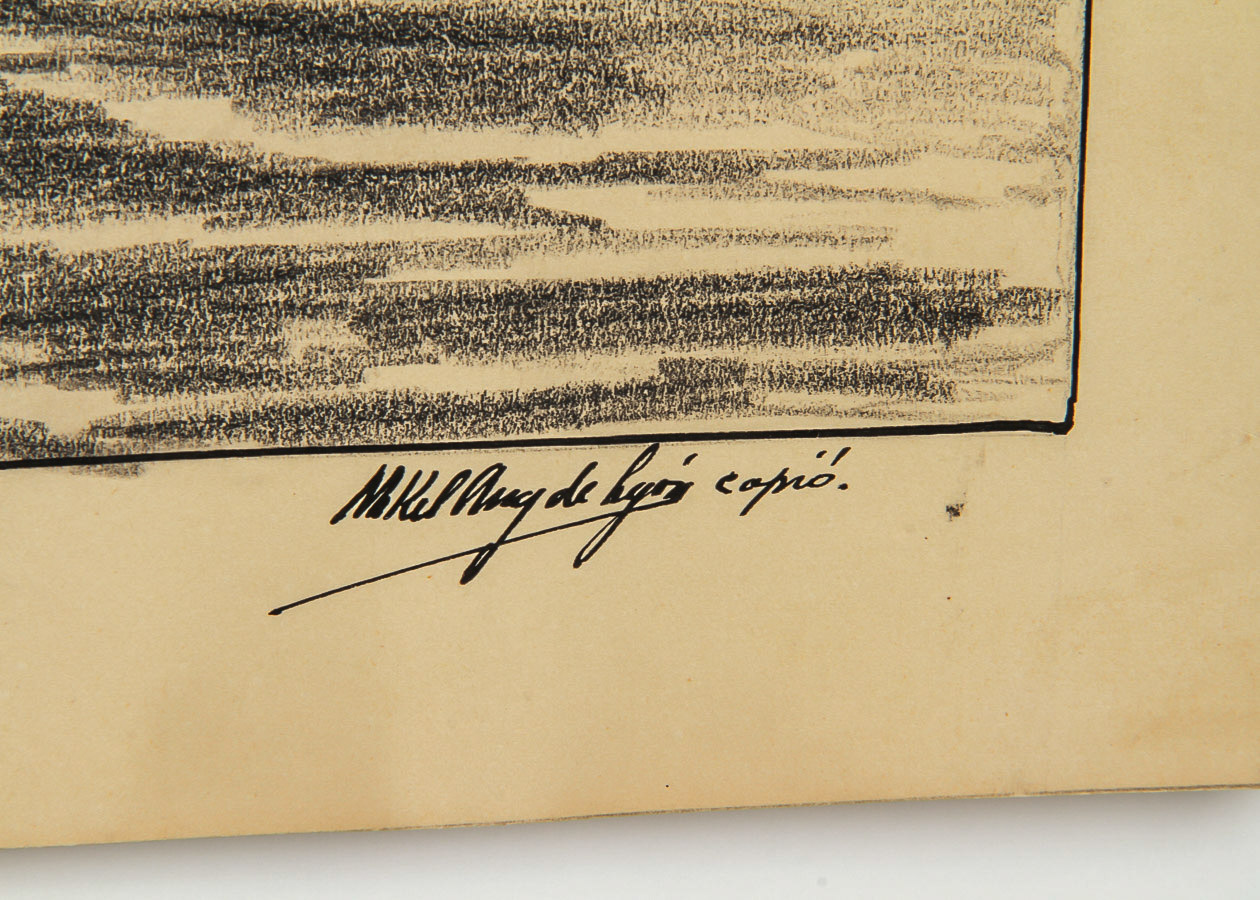 Mikel Ang de Lyón copió.